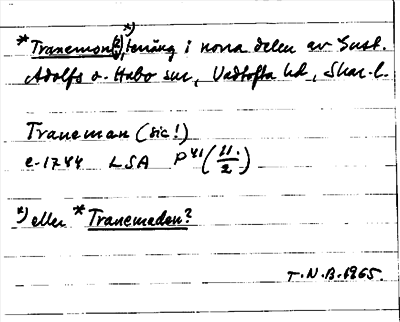 *Tranemon(?)*), teräng i norra delen av Gust.
Adolfs o. Habo snr, Vadtofta hd, Skar. l.
Traneman (sic!)
c. 1744 LSA P 41 (11/2)
*) eller *Tranemaden?
T. N. B. 1965.